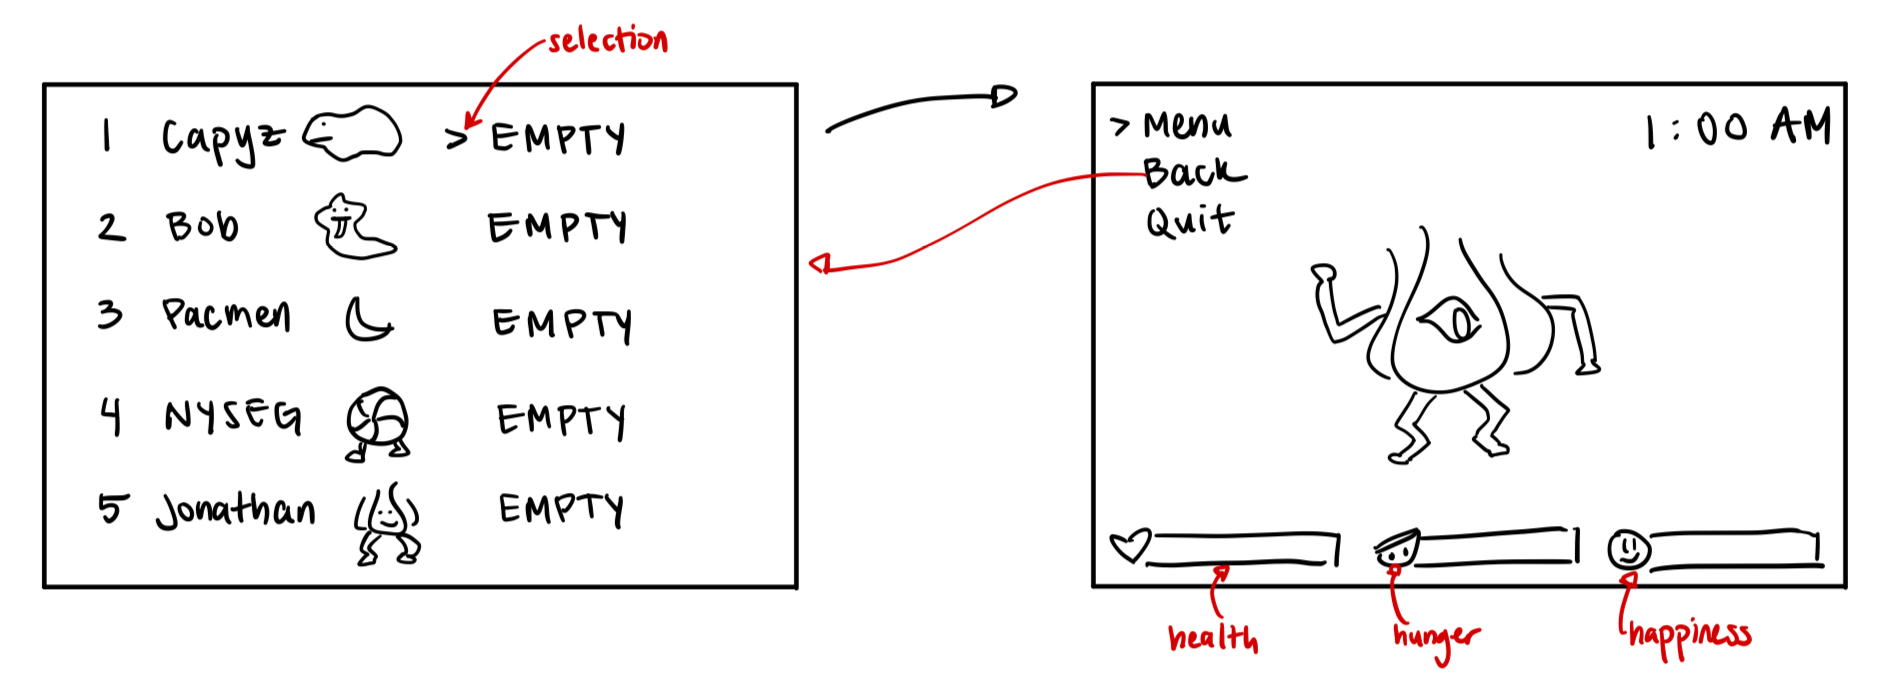 selection
1 Capyz > EMPTY
2 Bob EMPTY
3 Pacmen EMPTY
4 NYSEG EMPTY
5 Jonathan EMPTY
> Menu
Back
Quit
1:00 AM
health
hunger
happiness